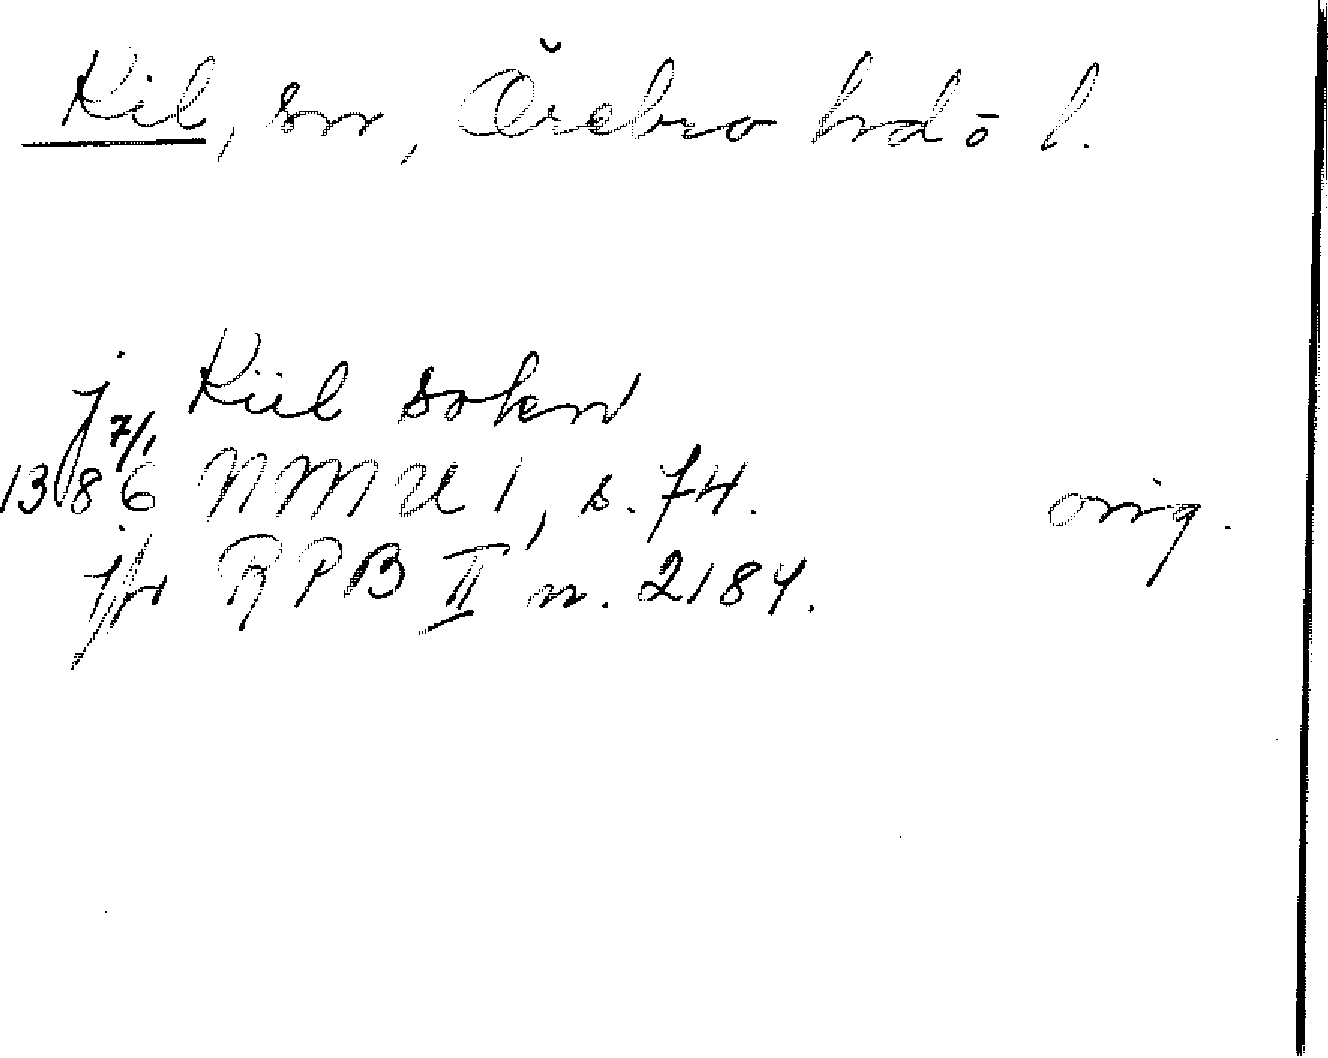 Kil, sn, Örebro hd ō l.
j Kiil sokn
7/1
1386 NMU 1, s. 74. orig.
jfr RPB II n. 2184.